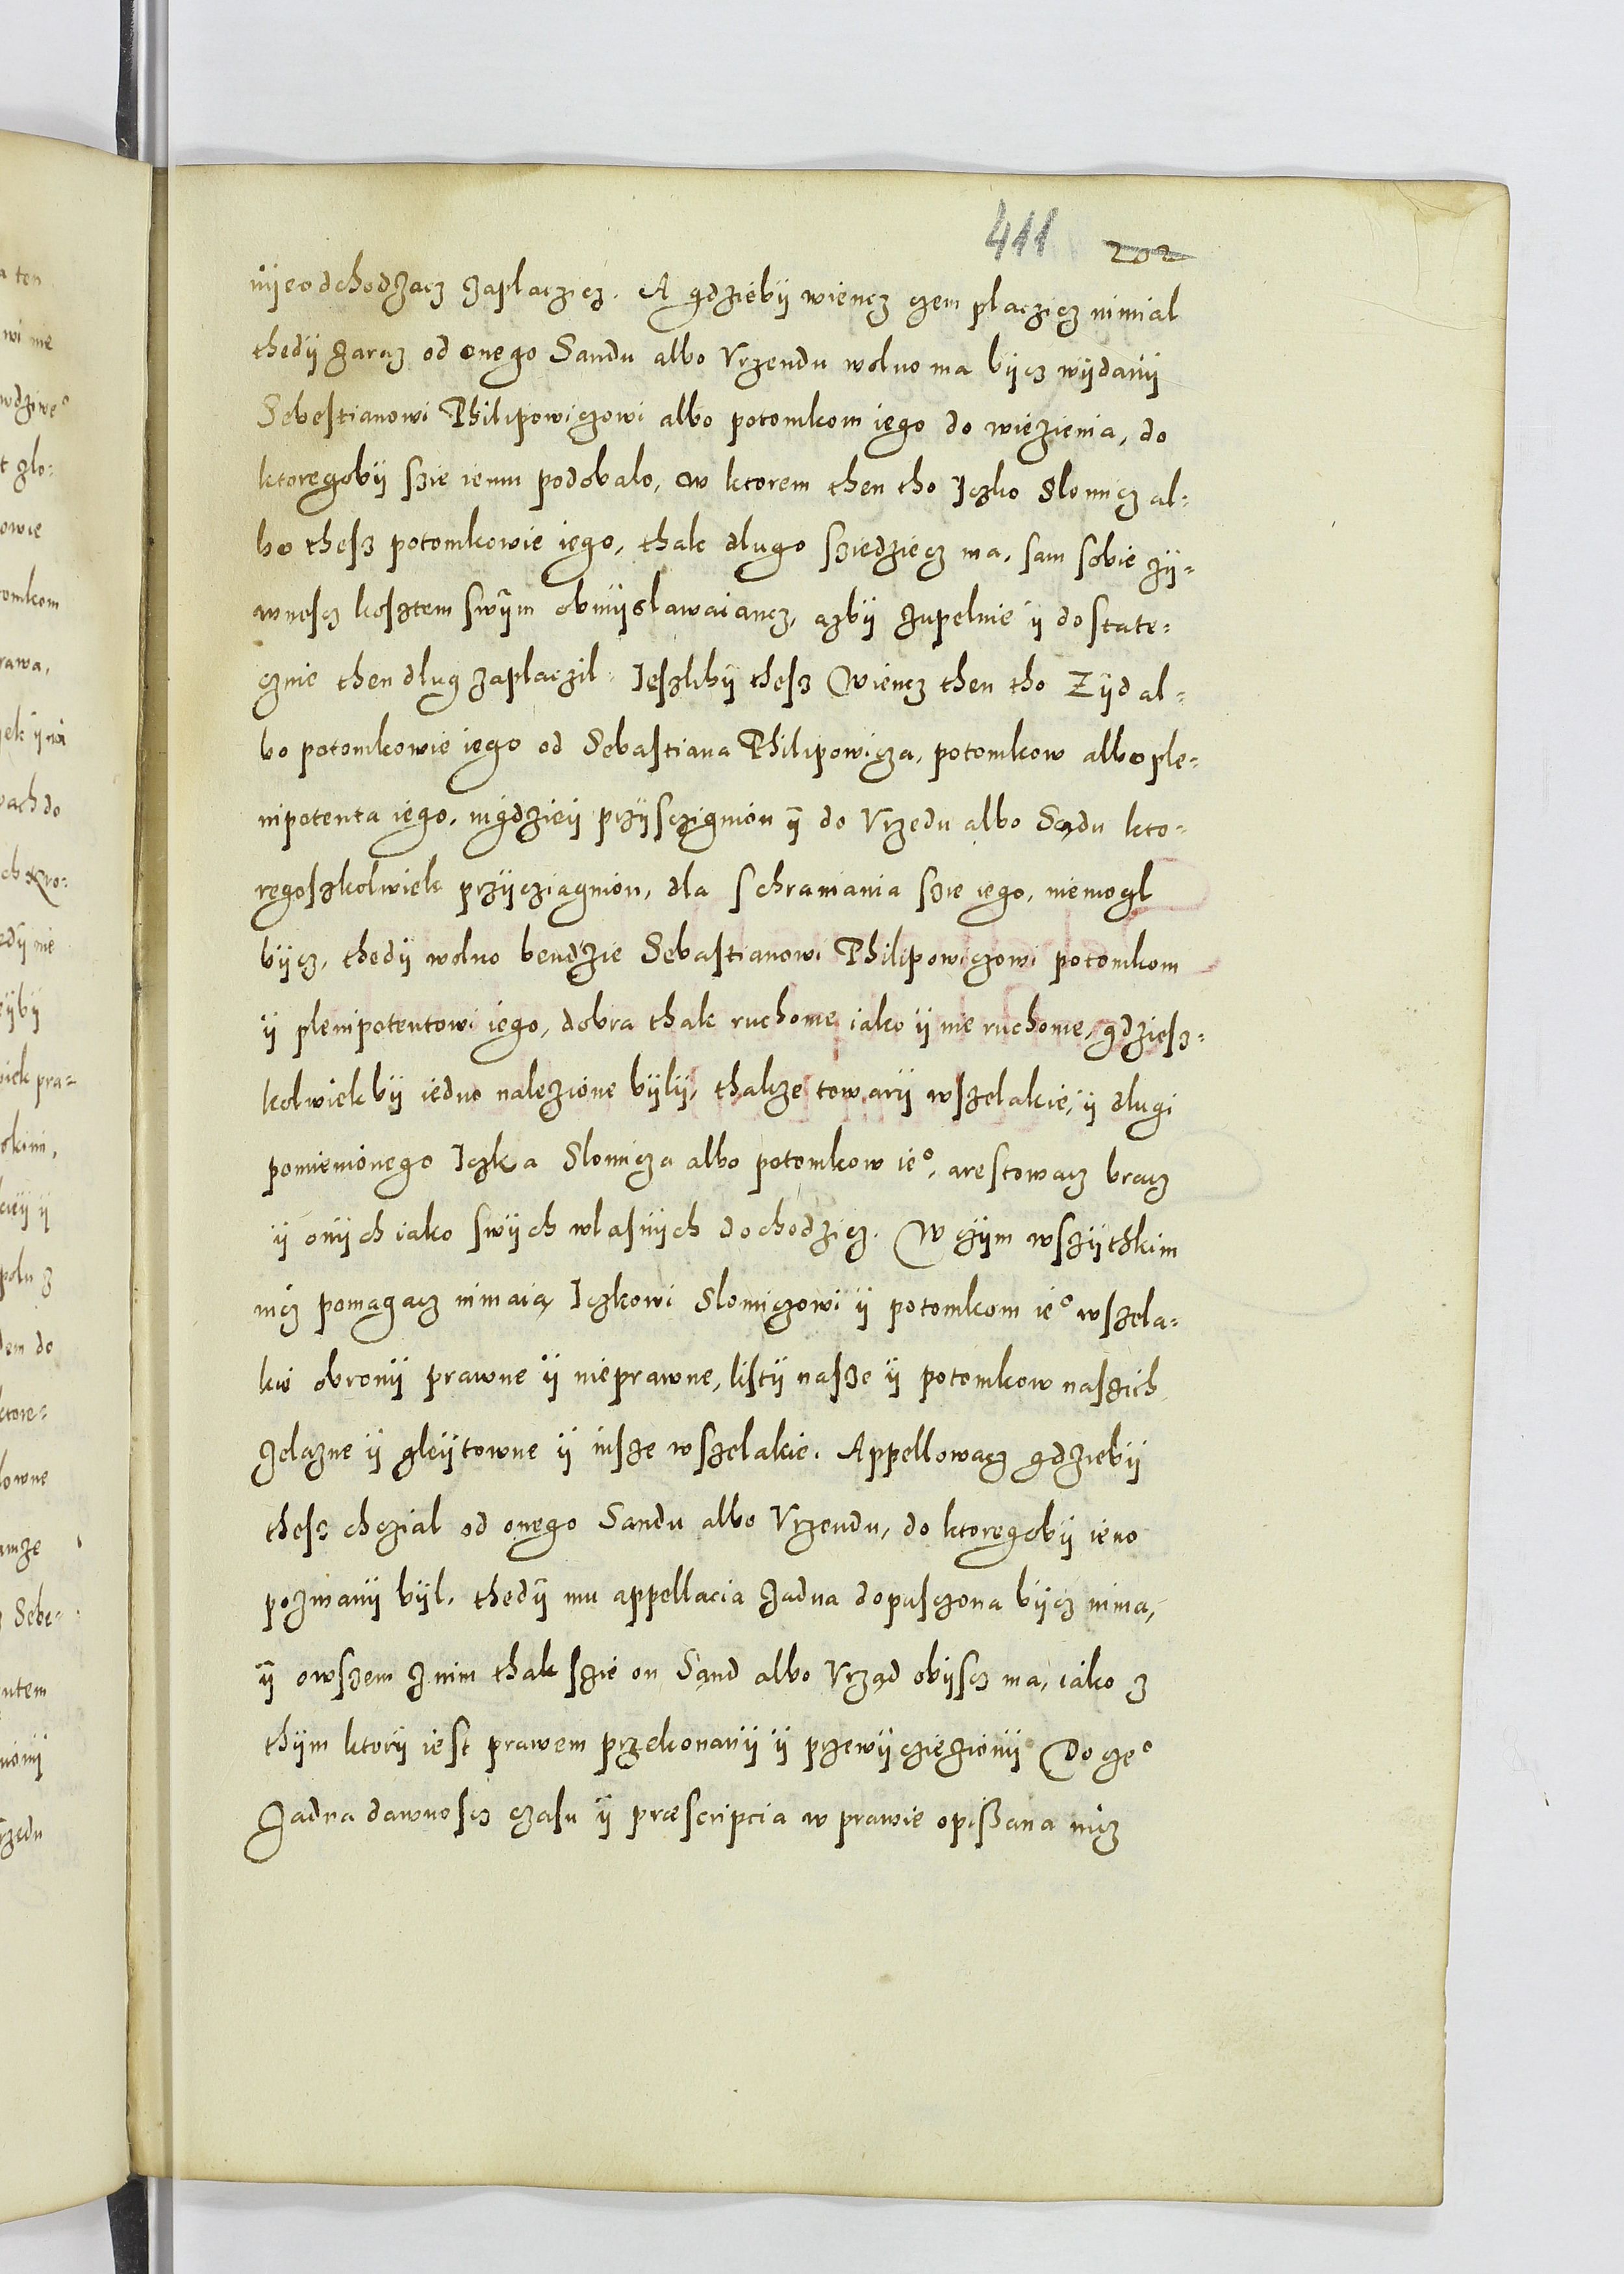 411 202
nÿe odchodzacz zaplaczicz. A gdziebÿ wiencz czem placzicz nimial
thedÿ zarcz od onego Sandu albo Vrzendu wolno ma bÿcz wÿdanÿ
Sebestianowi Philipowiczowi albo potomkom iego do wiezienia, do
ktoregobÿ szie iemu podobalo, w ktorem then tho Iczko Slomicz al=
bo thesz potomkowie iego, thak dlugo sziedziecz ma, sam sobie zÿ=
wnoscz kosztem swÿm obmÿslawaiancz, azbÿ zupelnie ÿ dostate=
cznie then dlug zaplaczil. Ieszlibÿ thesz wiencz then tho Zÿd al=
bo potomkowie iego od Sebastiana Philipowicza, potomkow albo ple=
nipotenta iego, nigdzieÿ przÿsczignion ÿ do Vrzedu albo Sądu kto=
regoszkolwiek przÿcziagnion, dla schraniania szie iego, niemogl
bÿcz, thedÿ wolno bendzie Sebastianowi Philipowiczowi potomkom
ÿ plenipotentowi iego, dobra thak ruchome iako ÿ nie ruchome, gdziesz=
kolwiek bÿ iedno nalezione bÿlÿ, thakze towarÿ wszelakie, ÿ dlugi
pomienionego Iczka Slomicza albo potomkow ie°, arestowacz bracz
ÿ onÿch iako swÿch wlasnÿch dochodzicz. W czÿm wszÿthkim
nicz pomagacz nimaią Iczkowi Slomiczowi ÿ potomkom ie° wszela=
kie obronÿ prawne ÿ nieprawne, listÿ nasze ÿ potomkow naszich
zelazne ÿ gleÿtowne ÿ insze wszelakie. Appellowacz gdziebÿ
thesz chczial od onego Sandu albo Vrzendu, do ktoregobÿ ieno
pozwanÿ bÿl, thedÿ mu appellacia zadna dopusczona bÿcz nima,
ÿ owszem z nim thak szie on Sand albo Vrząd obÿscz ma, iako z
thÿm ktorÿ iest prawem przekonanÿ ÿ przewÿcziezionÿ Do cze°
Zadna dawnoscz czasu ÿ præscripcia w prawie opißana nicz